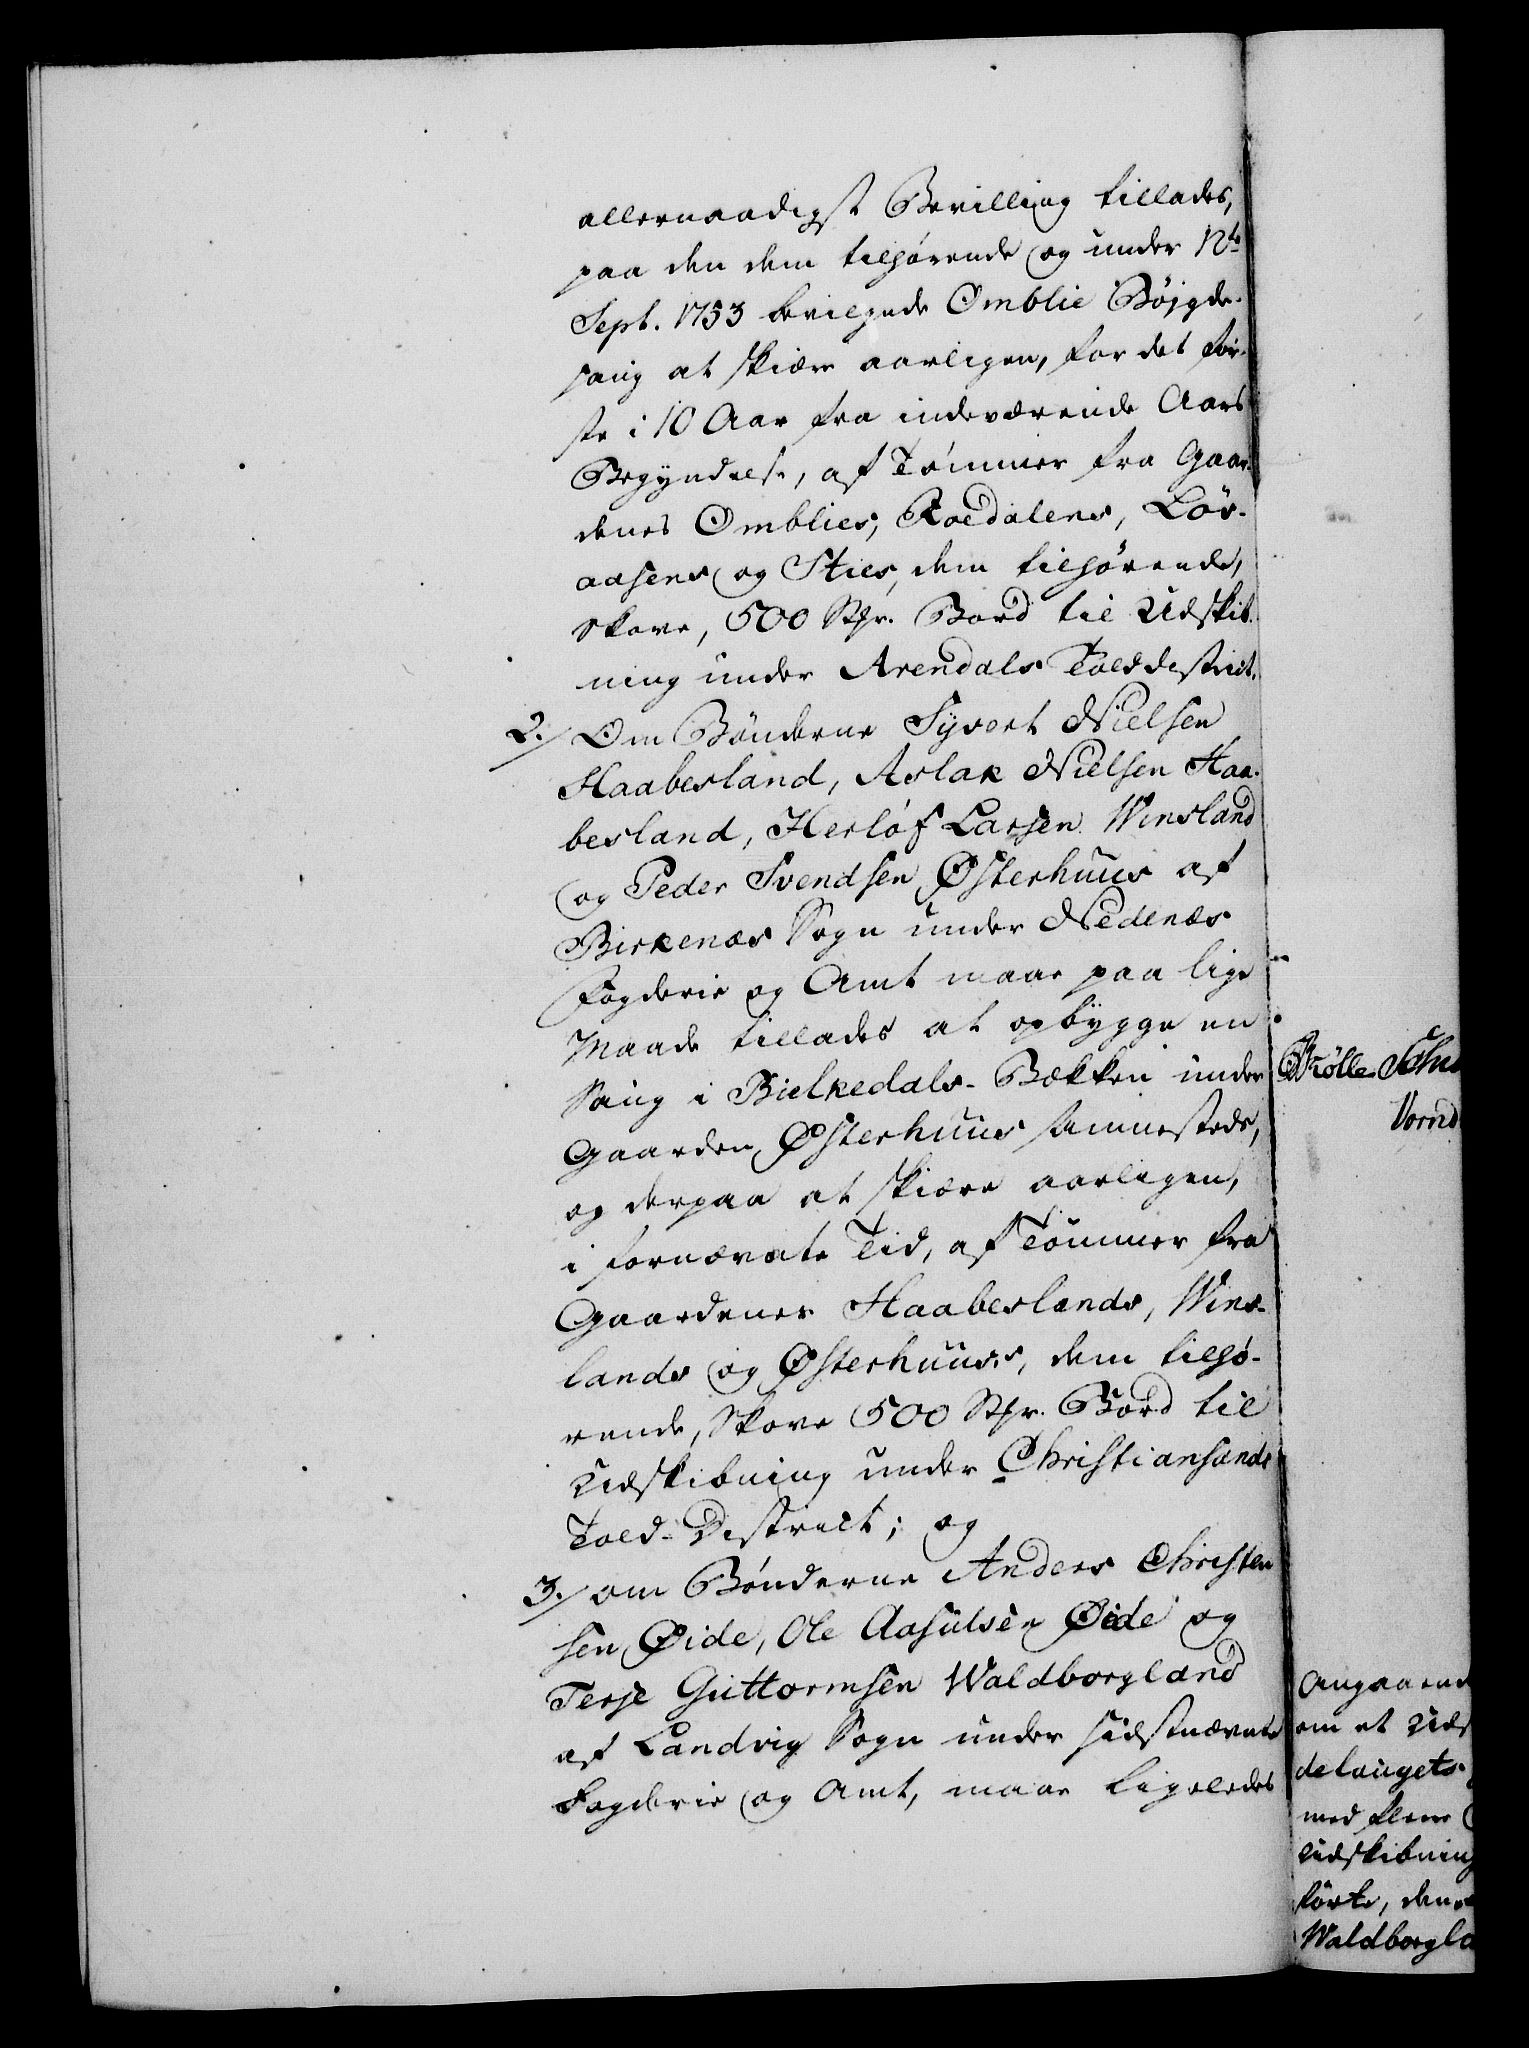 allernaadigst Bevilling tillades,
paa den dem tilhörende og under 12te
Sept. 1753 bevilgede Omblie Böjgde-
saug at skiære aarligen, for det för-
ste i 10 Aar fra indeværende Aars
Begyndelse, af Tømmer fra Gaar-
denes Omblies, Roedalens, Löv-
aasens og Sties, dem tilhörende,
Skove, 500 Stkr. Bord til Udskib-
ning under Arendals Tolddistrict.
2./ Om Bönderne Syvert Nielsen
Haabesland, Aslak Nielsen Haa-
besland, Herlof Larsen Winsland
og Peder Svendsen Østerhuus af
Birkenæs Sogn under Nedenæs
Fogderie og Amt maae paa lige
Maade tillades at opbygge en
Saug i Bielkedals-Bækken under
Gaarden Østerhuus sammesteds,
og derpaa at skiære aarligen,
i fornævnte Tid, af Tömmer fra
Gaardenes Haabeslands, Wins-
lands og Østerhuuses, dem tilhö-
rende, Skove 500 Stkr. Bord til
Udskibning under Christiansands
Told-District; og
3./ om Bönderne Anders Christen
sen Øide, Ole Aasulsen Øide og
Terje Guttormsen Waldborgland
af Landvig Sogn under sidstnævnte
Fogderie og Amt, maae ligeledes
Angaaend
om et Uds
delaugets
med flere
Udskibning
förte, den
Waldborgla